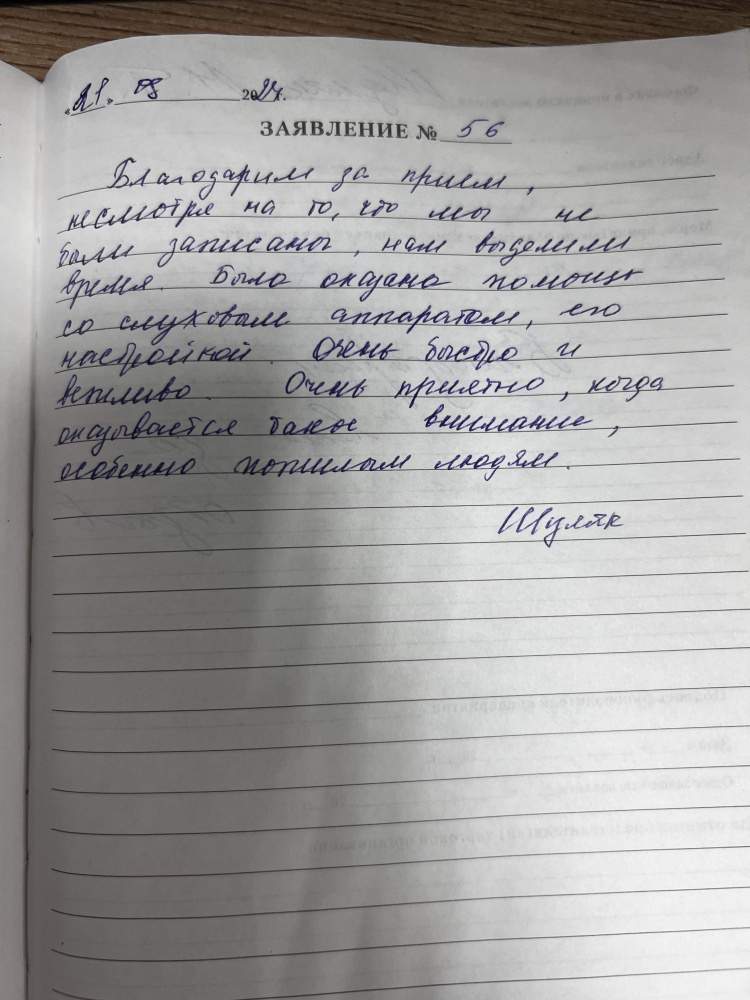 «21» 08 2024г.
ЗАЯВЛЕНИЕ № 56
Благодарим за прием,
несмотря на то, что мы не
были записаны, нам выделили
время. Была оказана помощь
со слуховым аппаратом, его
настройкой. Очень быстро и
вежливо. Очень приятно, когда
оказывается такое внимание,
особенно пожилым людям.
Шуляк